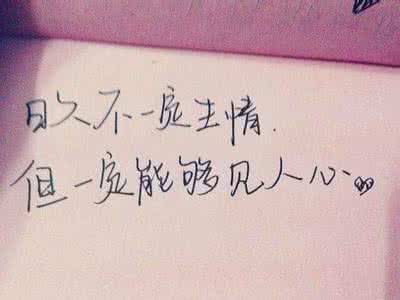 日久不一定生情.
但一定能够见人心。